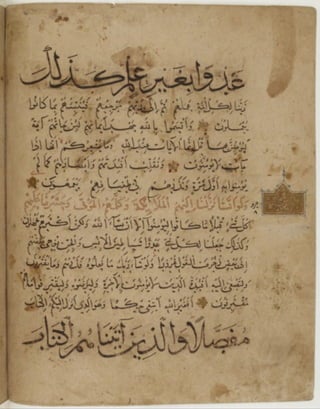 عدوا بغير علم كذلك
زينا لكل أمة عملهم ثم إلى ربهم مرجعهم فينبئهم بما كانوا
يعملون وأقسموا بالله جهد أيمانهم لئن جاءتهم آية
ليؤمنن بها قل إنما الآيات عند الله وما يشعركم أنها إذا
جاءت لا يؤمنون ونقلب أفئدتهم وأبصارهم كما لم
يؤمنوا به أول مرة ونذرهم في طغيانهم يعمهون
ولو أننا نزلنا إليهم الملائكة وكلمهم الموتى وحشرنا عليهم
كل شيء قبلا ما كانوا ليؤمنوا إلا أن يشاء الله ولكن أكثرهم يجهلون
وكذلك جعلنا لكل نبي عدوا شياطين الإنس والجن يوحي بعضهم
إلى بعض زخرف القول غرورا ولو شاء ربك ما فعلوه فذرهم وما يفترون
ولتصغى إليه أفئدة الذين لا يؤمنون بالآخرة وليرضوه وليقترفوا ما هم
مقترفون أفغير الله أبتغي حكما وهو الذي أنزل إليكم الكتاب
مفصلا والذين آتيناهم الكتاب